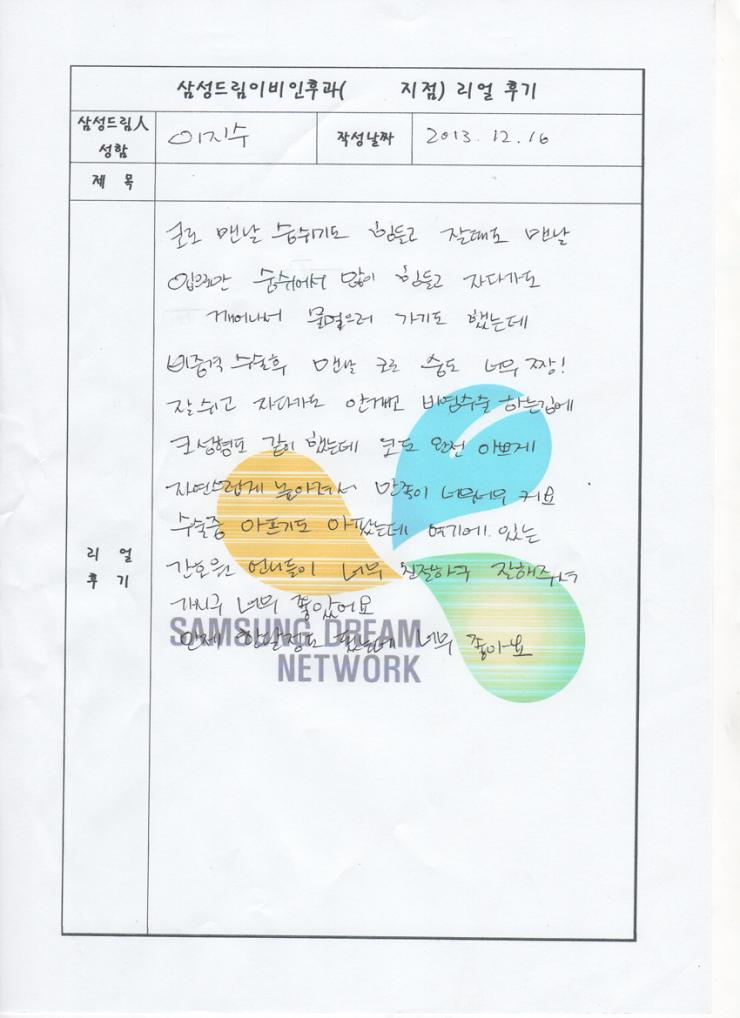 삼성드림이비인후과(      지점) 리얼 후기
삼성드림人
성함
이지수
작성날짜
2013. 12. 16
제 목
리 얼
후 기
코로 맨날 숨쉬기도 힘들고 잘때도 맨날
입으로만 숨쉬어서 많이 힘들고 자다가도
깨어나서 물먹으러 가기도 했는데
비중격 수술후 맨날 코로 숨도 너무 짱!
잘쉬고 자다가도 안깨고 비염수술 하는김에
코성형도 같이 했는데 코도 완전 이쁘게
자연스럽게 높아져서 만족이 너무너무 커요
수술중 아프기도 아팠는데 여기에 있는
간호원 언니들이 너무 친절하구 잘해주셔
가지구 너무 좋았어요
인제 한달정도 됐는데 너무 좋아요
SAMSUNG DREAM
NETWORK